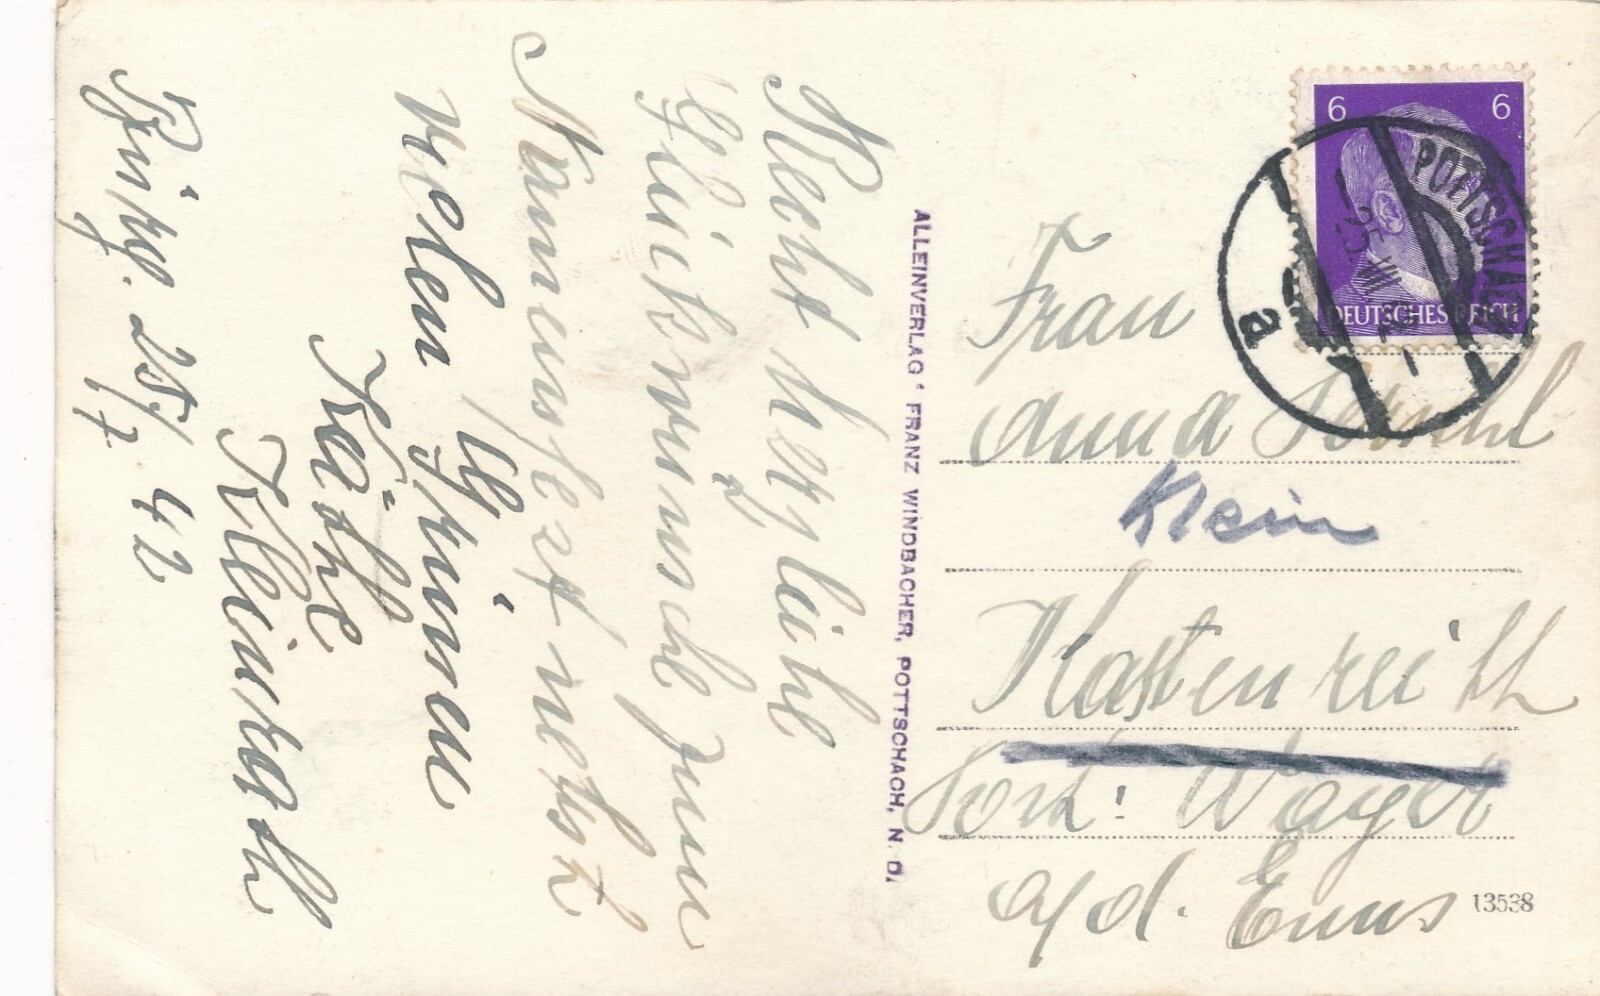 Recht herzliche
Glückwünsche zum
Namensfest nebst
vielen Grüßen
Käthe
Kleinrath
25/7 42
ALLEINVERLAG FRANZ WINDBACHER, POTTSCHACH, N. D.
6 6
DEUTSCHES REICH
POTTSCHACH
25.VII.42
a
Frau
Anna
Klein
Kastenreith
Post: Wayer
a/d. Enns
13538